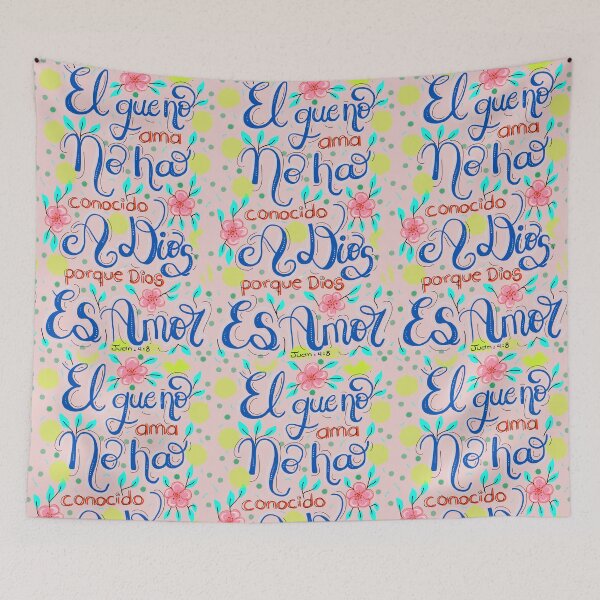 El que no
ama
No ha
conocido
A Dios
porque Dios
Es Amor
Juan 4:8
El que no
ama
No ha
conocido
A Dios
porque Dios
Es Amor
Juan 4:8
El que no
ama
No ha
conocido
A Dios
porque Dios
Es Amor
Juan 4:8
El que no
ama
No ha
conocido
El que no
ama
No ha
conocido
El que no
ama
No ha
conocido